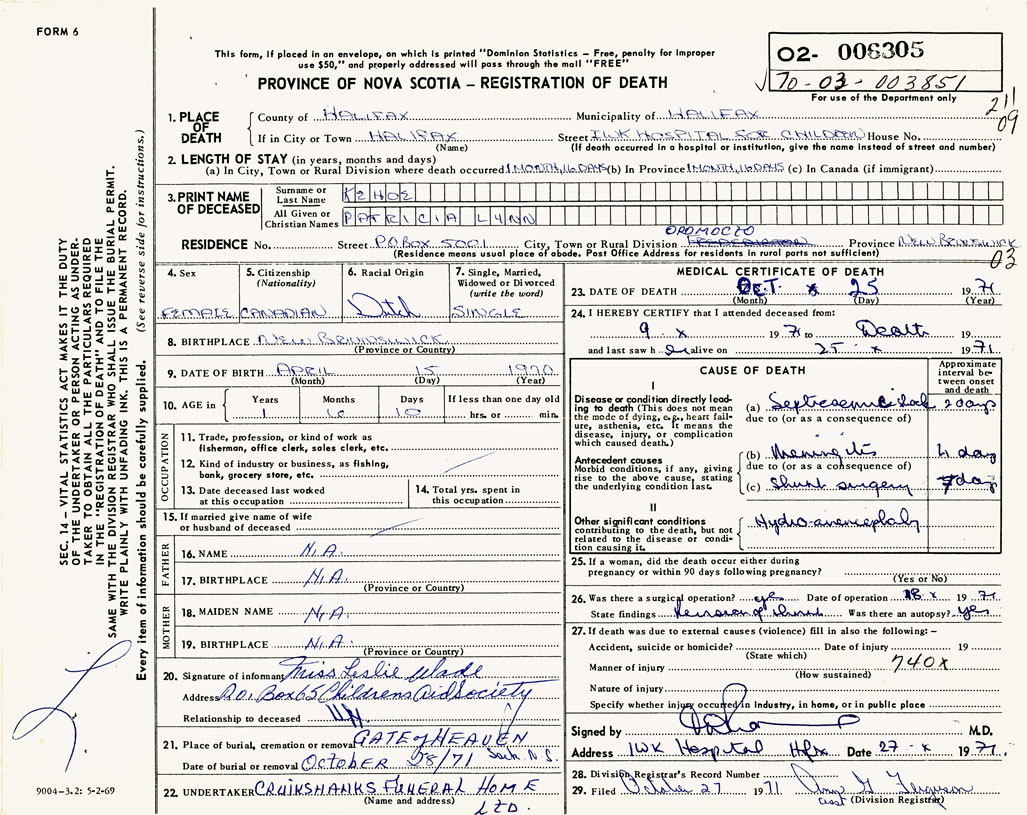 FORM 6
This form, if placed in an envelope, on which is printed "Dominion Statistics – Free, penalty for improper
use $50," and properly addressed will pass through the mail "FREE"
PROVINCE OF NOVA SCOTIA – REGISTRATION OF DEATH
02- 006305
70-03-003851
For use of the Department only
211
09
SEC. 14 – VITAL STATISTICS ACT MAKES IT THE DUTY
OF THE UNDERTAKER OR PERSON ACTING AS UNDER-
TAKER TO OBTAIN ALL THE PARTICULARS REQUIRED
IN THE "REGISTRATION OF DEATH" AND TO FILE THE
SAME WITH THE DIVISION REGISTRAR WHO SHALL ISSUE THE BURIAL PERMIT.
WRITE PLAINLY WITH UNFADING INK. THIS IS A PERMANENT RECORD.
Every item of information should be carefully supplied. (See reverse side for instructions.)
9004-3.2: 5-2-69
1. PLACE OF DEATH
County of HALIFAX Municipality of HALIFAX
If in City or Town HALIFAX Street IWK HOSPITAL FOR CHILDREN House No.
(Name) (If death occurred in a hospital or institution, give the name instead of street and number)
2. LENGTH OF STAY (in years, months and days)
(a) In City, Town or Rural Division where death occurred 1 MONTH, 16 DAYS (b) In Province 1 MONTH, 16 DAYS (c) In Canada (if immigrant)
3. PRINT NAME OF DECEASED
Surname or Last Name KEHOE
All Given or Christian Names PATRICIA LYNN
OROMOCTO
RESIDENCE No. Street PO BOX 5001 City, Town or Rural Division FREDERICTON Province NEW BRUNSWICK
(Residence means usual place of abode. Post Office Address for residents in rural parts not sufficient)
03
4. Sex
FEMALE
5. Citizenship
(Nationality)
CANADIAN
6. Racial Origin
Dutch
7. Single, Married,
Widowed or Divorced
(write the word)
SINGLE
8. BIRTHPLACE NEW BRUNSWICK
(Province or Country)
9. DATE OF BIRTH APRIL 15 1970
(Month) (Day) (Year)
10. AGE in
Years Months Days If less than one day old
1 6 10 hrs. or min.
OCCUPATION
11. Trade, profession, or kind of work as
fisherman, office clerk, sales clerk, etc.
12. Kind of industry or business, as fishing,
bank, grocery store, etc.
13. Date deceased last worked
at this occupation
14. Total yrs. spent in
this occupation
15. If married give name of wife
or husband of deceased
FATHER
16. NAME N.A.
17. BIRTHPLACE N.A.
(Province or Country)
MOTHER
18. MAIDEN NAME N.A.
19. BIRTHPLACE N.A.
(Province or Country)
20. Signature of informant Miss Leslie Wade
Address P.O. Box 65 Childrens Aid Society
Relationship to deceased
21. Place of burial, cremation or removal GATE of HEAVEN
Sack N.S.
Date of burial or removal October 28/71
22. UNDERTAKER CRUIKSHANKS FUNERAL HOME
(Name and address) LTD.
MEDICAL CERTIFICATE OF DEATH
23. DATE OF DEATH OCT. 25 1971
(Month) (Day) (Year)
24. I HEREBY CERTIFY that I attended deceased from:
9 . x 1971 to Death 19
and last saw h e alive on 25 . x 1971
CAUSE OF DEATH
Approximate
interval be-
tween onset
and death
I
Disease or condition directly lead-
ing to death (This does not mean
the mode of dying, e.g., heart fail-
ure, asthenia, etc. It means the
disease, injury, or complication
which caused death.)
(a) Septicaemic Shock 2 days
due to (or as a consequence of)
Antecedent causes
Morbid conditions, if any, giving
rise to the above cause, stating
the underlying condition last.
(b) Meningitis 4 day
due to (or as a consequence of)
(c) Shunt surgery 7 day
II
Other significant conditions
contributing to the death, but not
related to the disease or condi-
tion causing it.
Hydro-anencephaly
25. If a woman, did the death occur either during
pregnancy or within 90 days following pregnancy?
(Yes or No)
26. Was there a surgical operation? yes Date of operation 18 . x 1971
State findings Revision of shunt Was there an autopsy? yes
27. If death was due to external causes (violence) fill in also the following: –
Accident, suicide or homicide? Date of injury 19
(State which)
740X
Manner of injury
(How sustained)
Nature of injury
Specify whether injury occurred in industry, in home, or in public place
Signed by M.D.
Address IWK Hospital Hfx Date 27 . x 1971
28. Division Registrar's Record Number
29. Filed October 27 1971 Ferguson
(Division Registrar)